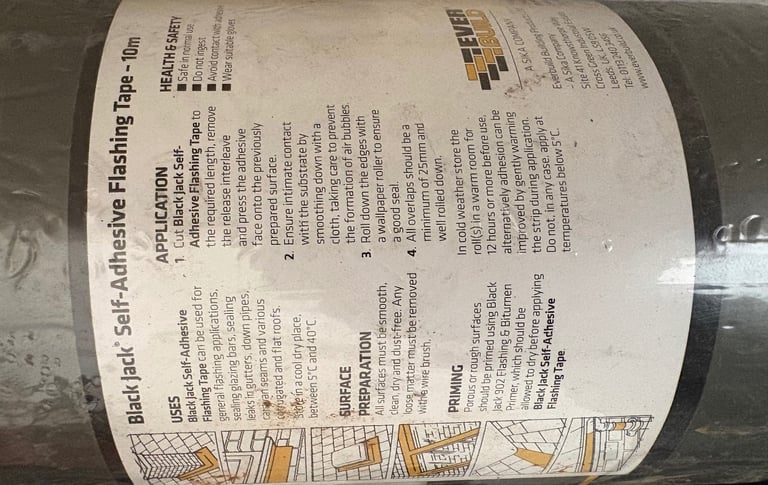 Black Jack® Self-Adhesive Flashing Tape - 10m
USES
Black Jack Self-Adhesive
Flashing Tape can be used for
general flashing applications,
sealing glazing bars, sealing
leaks in gutters, down pipes,
caravan seams and various
corrugated and flat roofs.
Store in a cool dry place,
between 5°C and 40°C.
SURFACE
PREPARATION
All surfaces must be smooth,
clean, dry and dust-free. Any
loose matter must be removed
with a wire brush.
PRIMING
Porous or rough surfaces
should be primed using Black
Jack 902 Flashing & Bitumen
Primer, which should be
allowed to dry before applying
Black Jack Self-Adhesive
Flashing Tape.
APPLICATION
1. Cut Black Jack Self-
Adhesive Flashing Tape to
the required length, remove
the release interleave
and press the adhesive
face onto the previously
prepared surface.
2. Ensure intimate contact
with the substrate by
smoothing down with a
cloth, taking care to prevent
the formation of air bubbles.
3. Roll down the edges with
a wallpaper roller to ensure
a good seal.
4. All overlaps should be a
minimum of 25mm and
well rolled down.
In cold weather store the
roll(s) in a warm room for
12 hours or more before use,
alternatively adhesion can be
improved by gently warming
the strip during application.
Do not, in any case, apply at
temperatures below 5°C.
HEALTH & SAFETY
■ Safe in normal use
■ Do not ingest
■ Avoid contact with adhesive
■ Wear suitable gloves
EVER
BUILD
A SIKA COMPANY
Everbuild Building Products
- A Sika Company
Site 41 Knowsthorpe
Cross Green
Leeds, UK, LS9
Tel: 0113 240
www.everbuild.co